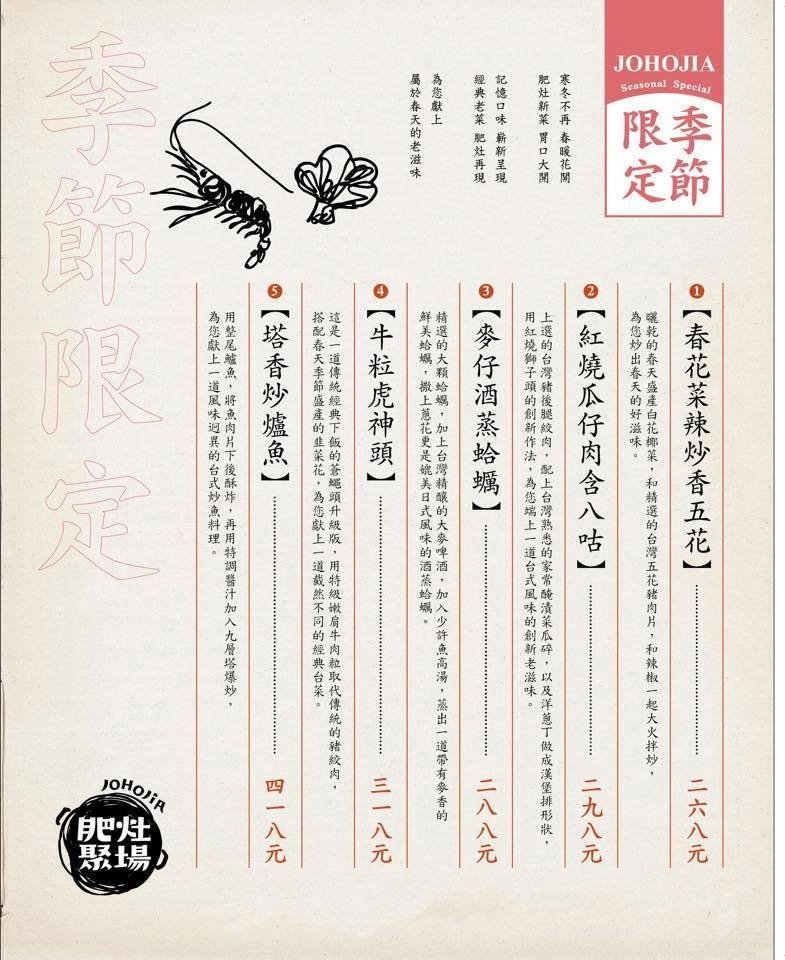 JOHOJIA
Seasonal Special
季節
限定
寒冬不再 春暖花開
肥灶新菜 胃口大開
記憶口味 嶄新呈現
經典老菜 肥灶再現
為您獻上
屬於春天的老滋味
季節限定
1
【春花菜辣炒香五花】
二六八元
曬乾的春天盛產白花椰菜，和精選的台灣五花豬肉片，和辣椒一起大火拌炒，
為您炒出春天的好滋味。
2
【紅燒瓜仔肉含八咕】
二九八元
上選的台灣豬後腿絞肉，配上台灣熟悉的家常醃漬菜瓜碎，以及洋蔥丁做成漢堡排形狀，
用紅燒獅子頭的創新作法，為您端上一道台式風味的創新老滋味。
3
【麥仔酒蒸蛤蠣】
二八八元
精選的大顆蛤蠣，加上台灣精釀的大麥啤酒，加入少許魚高湯，蒸出一道帶有麥香的
鮮美蛤蠣，撒上蔥花更是媲美日式風味的酒蒸蛤蠣。
4
【牛粒虎神頭】
三一八元
這是一道傳統經典下飯的蒼蠅頭升級版，用特級嫩肩牛肉粒取代傳統的豬絞肉，
搭配春天季節盛產的韭菜花，為您獻上一道截然不同的經典台菜。
5
【塔香炒爐魚】
四一八元
用整尾鱸魚，將魚肉片下後酥炸，再用特調醬汁加入九層塔爆炒，
為您獻上一道風味迥異的台式炒魚料理。
JOHOJIA
肥灶
聚場